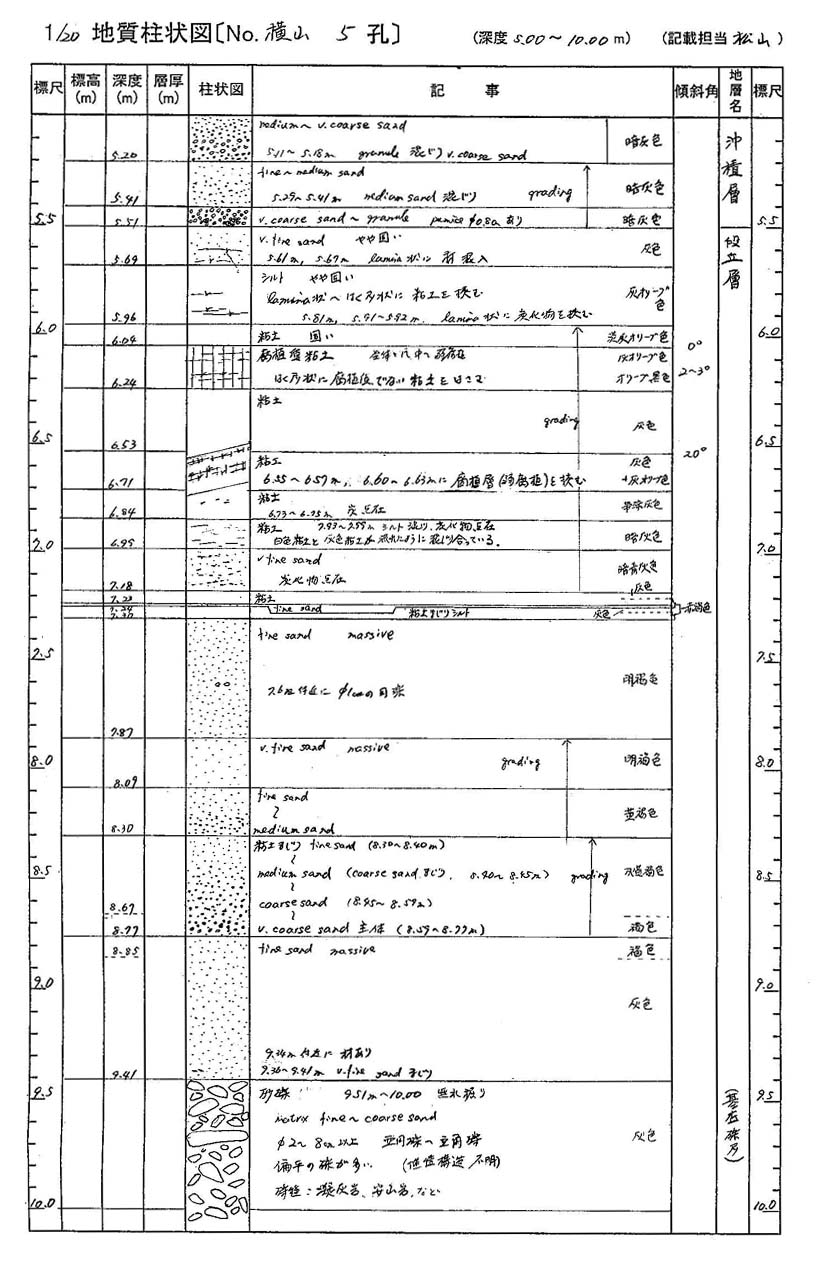 1/20 地質柱状図〔No. 横山 5 孔〕 (深度 5.00～10.00 m) (記載担当 松山)
標尺 標高(m) 深度(m) 層厚(m) 柱状図 記事 傾斜角 地層名 標尺
medium～ v.coarse sand
5.11～ 5.18m granule 混じり v.coarse sand
暗灰色
5.20
沖積層
fine～medium sand
5.29～5.41m medium sand 混じり grading
暗灰色
5.41
5.5 5.5
v. coarse sand～granule pumice φ0.8cmあり
暗灰色
5.51
段丘層
v. fine sand やや固い
5.61m, 5.67m lamina状に 材混入
灰色
5.69
シルト やや固い
lamina状～はく片状に 粘土を挟む
5.81m, 5.91～5.92m. lamina状に炭化物を挟む
灰オリーブ色
5.96
6.0 6.0
粘土 固い
6.04
0°
腐植質粘土
灰オリーブ色
はく片状に腐植質でない粘土をはさむ
オリーブ黒色
2～3°
6.24
粘土
grading
灰色
6.5 6.5
6.53
20°
粘土
6.55～6.57m, 6.60～6.63mに腐植層
を挟む
灰色
6.71
粘土
6.73～6.75m 炭点在
6.84
粘土
シルト混り、炭化物点在
白色粘土と灰色粘土が
ように混じり合っている。
暗灰色
6.99
7.0 7.0
v fine sand
炭化物点在
暗青灰色
灰色
7.18
粘土
7.23
7.24
fine sand 粘土まじりシルト 灰色
7.30
fine sand massive
7.5 7.5
明褐色
7.87
v. fine sand massive
grading
明褐色
8.0 8.0
8.09
fine sand
～
medium sand
黄褐色
8.30
粘土まじり fine sand (8.30～8.40m)
～
medium sand (coarse sandまじり, 8.40～8.45m) grading
8.5 8.5
～
coarse sand (8.45～8.59m)
8.67
～
v. coarse sand 主体 (8.59～8.77m)
褐色
8.77
fine sand massive
褐色
8.85
9.0 9.0
灰色
9.34m付近に材あり
9.36～9.41m v.fine sandまじり
9.41
9.5 9.5
砂礫 9.51m～10.00 無水掘り
matrix fine～coarse sand
φ2～8cm以上 亜円礫～亜角礫
灰色
偏平の礫が多い (堆積構造不明)
礫種：凝灰岩、安山岩、など
(基底礫層)
10.0 10.0